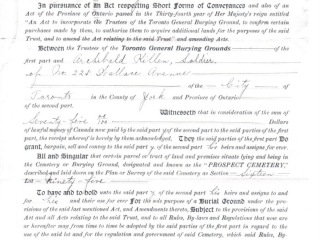 In pursuance of an Act respecting Short Forms of Conveyances and also of an
Act of the Province of Ontario passed in the Thirty-fourth year of Her Majesty's reign entitled
"An Act to incorporate the Trustees of the Toronto General Burying Grounds, to confirm certain
purchases made by them, to authorize them to acquire additional lands for the purposes of the said
Trust, and to amend the Acts relating to the said Trust" and amending Acts.
Between the Trustees of the Toronto General Burying Grounds of the
first part and Archibald Soldier,
of No 228 Wallace Avenue
of the City of
Toronto in the County of York and Province of Ontario
of the second part.
Witnesseth that in consideration of the sum
of Seventy five Dollars
of lawful money of Canada now paid by the said part y of the second part to the said parties of the first
part, the receipt whereof is hereby by them acknowledged, They the said parties of the first part Do
grant, bargain, sell and convey to the said part y of the second part his heirs and assigns for ever.
All and Singular that certain parcel or tract of land and premises situate lying and being in
the Cemetery or Burying Ground, designated and known as the "PROSPECT CEMETERY,"
described and laid down on the Plan or Survey of the said Cemetery as Section
Lot Ninety four
To have and to hold unto the said part y of the second part his heirs and assigns to and
for his and their use for ever for the sole purposes of a Burial Ground under the pro-
visions of the said mentioned Act, and Amendments thereto, Subject to the provisions of the said
Act and all Acts relating to the said Trust, and to all Rules, By-laws and Regulations that now are
or hereafter may from time to time be adopted by the said parties of the first part in regard to
the said lot and for the regulation and government of said Cemetery, which said Rules, By-